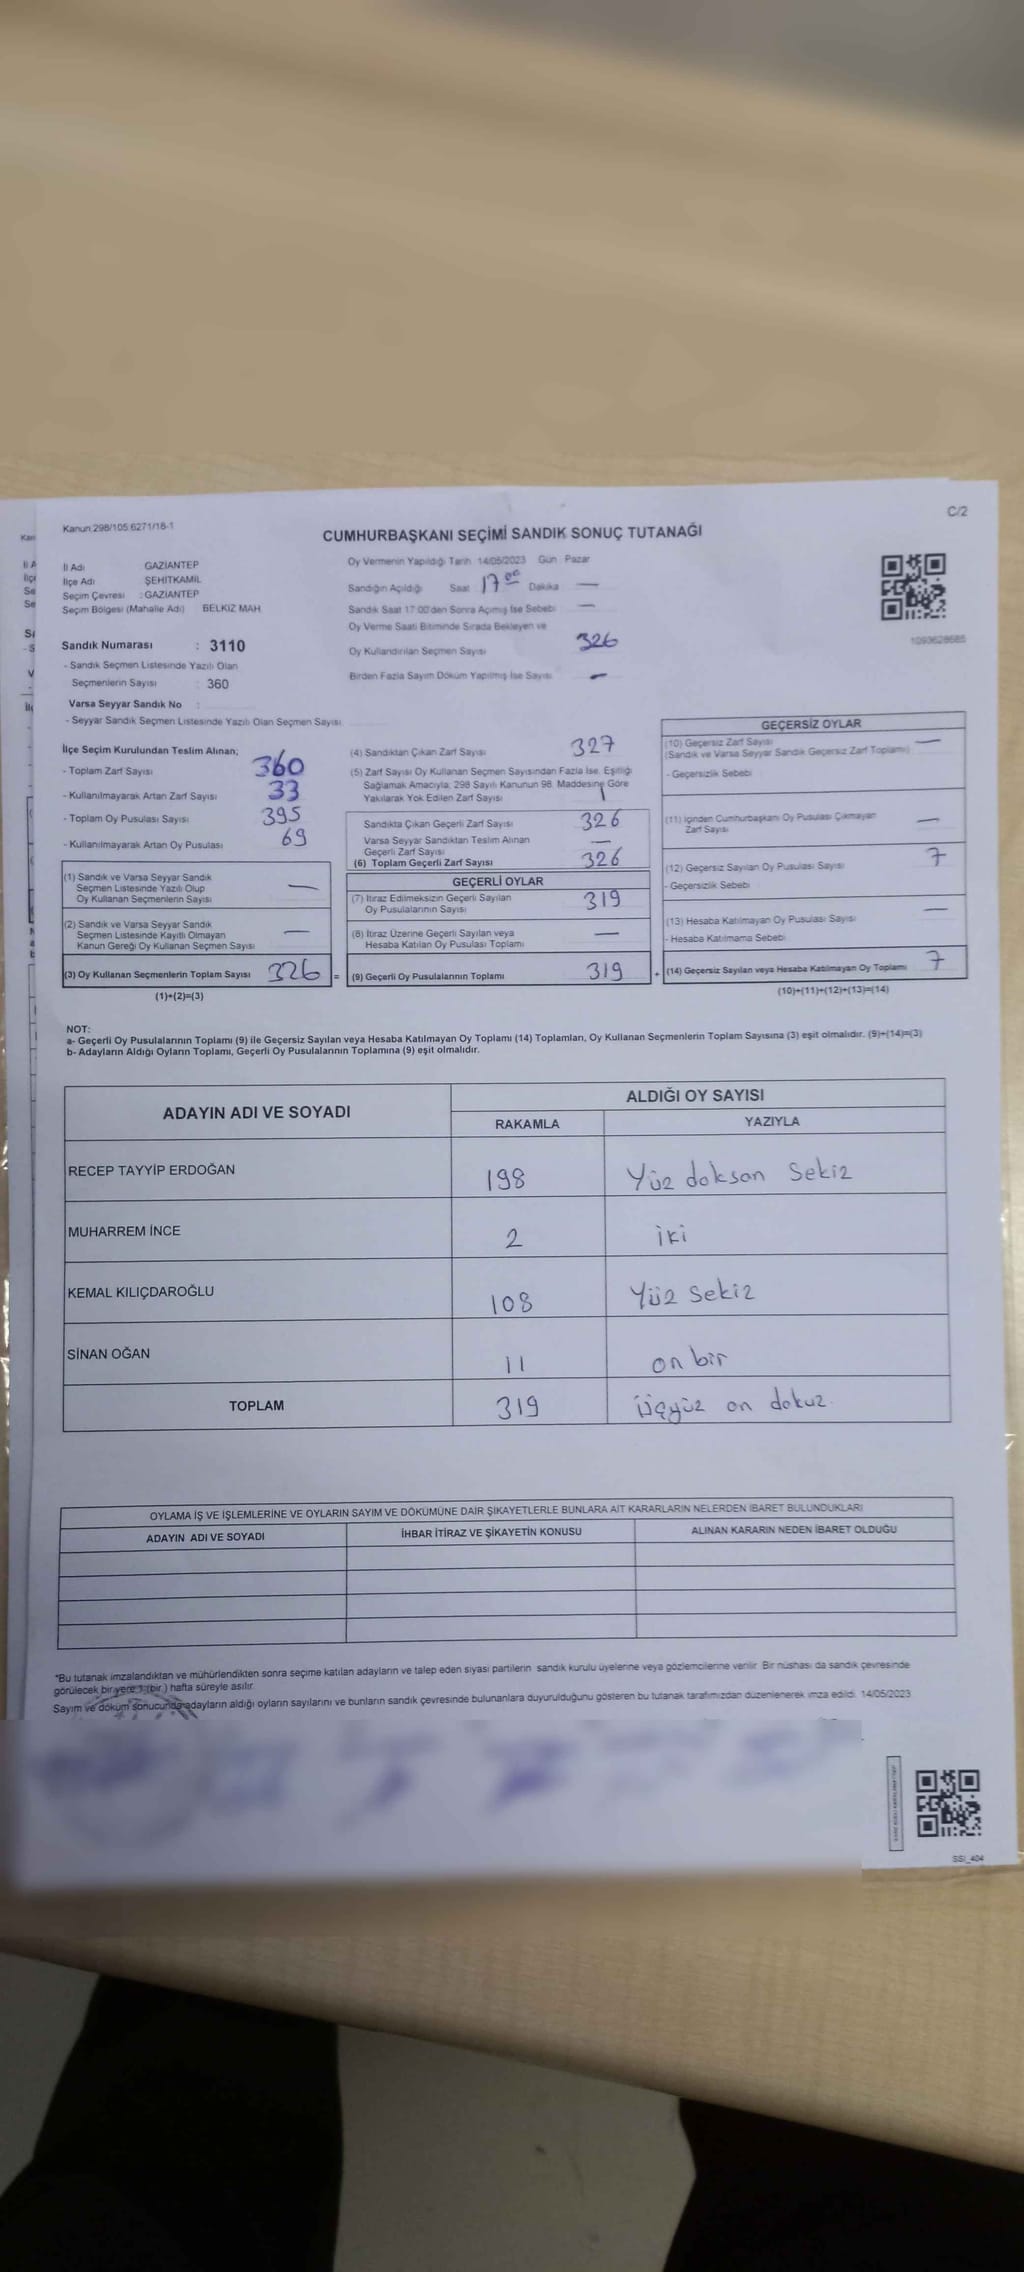 C/2
Kanun 298/105 6271/18-1
CUMHURBAŞKANI SEÇİMİ SANDIK SONUÇ TUTANAĞI
İl Adı GAZİANTEP
İlçe Adı ŞEHİTKAMİL
Seçim Çevresi : GAZİANTEP
Seçim Bölgesi (Mahalle Adı) BELKIZ MAH
Oy Vermenin Yapıldığı Tarih 14/05/2023 Gün Pazar
Sandığın Açıldığı Saat 17 00 Dakika —
Sandık Saat 17:00'den Sonra Açılmış İse Sebebi —
Oy Verme Saati Bitiminde Sırada Bekleyen ve
Oy Kullandırılan Seçmen Sayısı 326
Birden Fazla Sayım Döküm Yapılmış İse Sayısı —
1093628685
Sandık Numarası : 3110
- Sandık Seçmen Listesinde Yazılı Olan
Seçmenlerin Sayısı 360
Varsa Seyyar Sandık No :
- Seyyar Sandık Seçmen Listesinde Yazılı Olan Seçmen Sayısı
İlçe Seçim Kurulundan Teslim Alınan;
- Toplam Zarf Sayısı 360
- Kullanılmayarak Artan Zarf Sayısı 33
- Toplam Oy Pusulası Sayısı 395
- Kullanılmayarak Artan Oy Pusulası 69
(1) Sandık ve Varsa Seyyar Sandık
Seçmen Listesinde Yazılı Olup
Oy Kullanan Seçmenlerin Sayısı —
(2) Sandık ve Varsa Seyyar Sandık
Seçmen Listesinde Kayıtlı Olmayan
Kanun Gereği Oy Kullanan Seçmen Sayısı —
(3) Oy Kullanan Seçmenlerin Toplam Sayısı 326 =
(1)+(2)=(3)
(4) Sandıktan Çıkan Zarf Sayısı 327
(5) Zarf Sayısı Oy Kullanan Seçmen Sayısından Fazla İse, Eşitliği
Sağlamak Amacıyla, 298 Sayılı Kanunun 98. Maddesine Göre
Yakılarak Yok Edilen Zarf Sayısı 1
Sandıkta Çıkan Geçerli Zarf Sayısı 326
Varsa Seyyar Sandıktan Teslim Alınan
Geçerli Zarf Sayısı —
(6) Toplam Geçerli Zarf Sayısı 326
GEÇERLİ OYLAR
(7) İtiraz Edilmeksizin Geçerli Sayılan
Oy Pusulalarının Sayısı 319
(8) İtiraz Üzerine Geçerli Sayılan veya
Hesaba Katılan Oy Pusulası Toplamı —
(9) Geçerli Oy Pusulalarının Toplamı 319 +
GEÇERSİZ OYLAR
(10) Geçersiz Zarf Sayısı —
(Sandık ve Varsa Seyyar Sandık Geçersiz Zarf Toplamı)
- Geçersizlik Sebebi
(11) İçinden Cumhurbaşkanı Oy Pusulası Çıkmayan
Zarf Sayısı —
(12) Geçersiz Sayılan Oy Pusulası Sayısı 7
- Geçersizlik Sebebi
(13) Hesaba Katılmayan Oy Pusulası Sayısı —
- Hesaba Katılmama Sebebi
(14) Geçersiz Sayılan veya Hesaba Katılmayan Oy Toplamı 7
(10)+(11)+(12)+(13)=(14)
NOT:
a- Geçerli Oy Pusulalarının Toplamı (9) ile Geçersiz Sayılan veya Hesaba Katılmayan Oy Toplamı (14) Toplamları, Oy Kullanan Seçmenlerin Toplam Sayısına (3) eşit olmalıdır. (9)+(14)=(3)
b- Adayların Aldığı Oyların Toplamı, Geçerli Oy Pusulalarının Toplamına (9) eşit olmalıdır.
ADAYIN ADI VE SOYADI
ALDIĞI OY SAYISI
RAKAMLA YAZIYLA
RECEP TAYYİP ERDOĞAN 198 Yüz doksan sekiz
MUHARREM İNCE 2 iki
KEMAL KILIÇDAROĞLU 108 Yüz sekiz
SİNAN OĞAN 11 on bir
TOPLAM 319 üçyüz on dokuz.
OYLAMA İŞ VE İŞLEMLERİNE VE OYLARIN SAYIM VE DÖKÜMÜNE DAİR ŞİKAYETLERLE BUNLARA AİT KARARLARIN NELERDEN İBARET BULUNDUKLARI
ADAYIN ADI VE SOYADI İHBAR İTİRAZ VE ŞİKAYETİN KONUSU ALINAN KARARIN NEDEN İBARET OLDUĞU
*Bu tutanak imzalandıktan ve mühürlendikten sonra seçime katılan adayların ve talep eden siyasi partilerin sandık kurulu üyelerine veya gözlemcilerine verilir. Bir nüshası da sandık çevresinde
görülecek bir yere 1 (bir) hafta süreyle asılır.
Sayım ve döküm sonucunda adayların aldığı oyların sayılarını ve bunların sandık çevresinde bulunanlara duyurulduğunu gösteren bu tutanak tarafımızdan düzenlenerek imza edildi. 14/05/2023
SSI_404